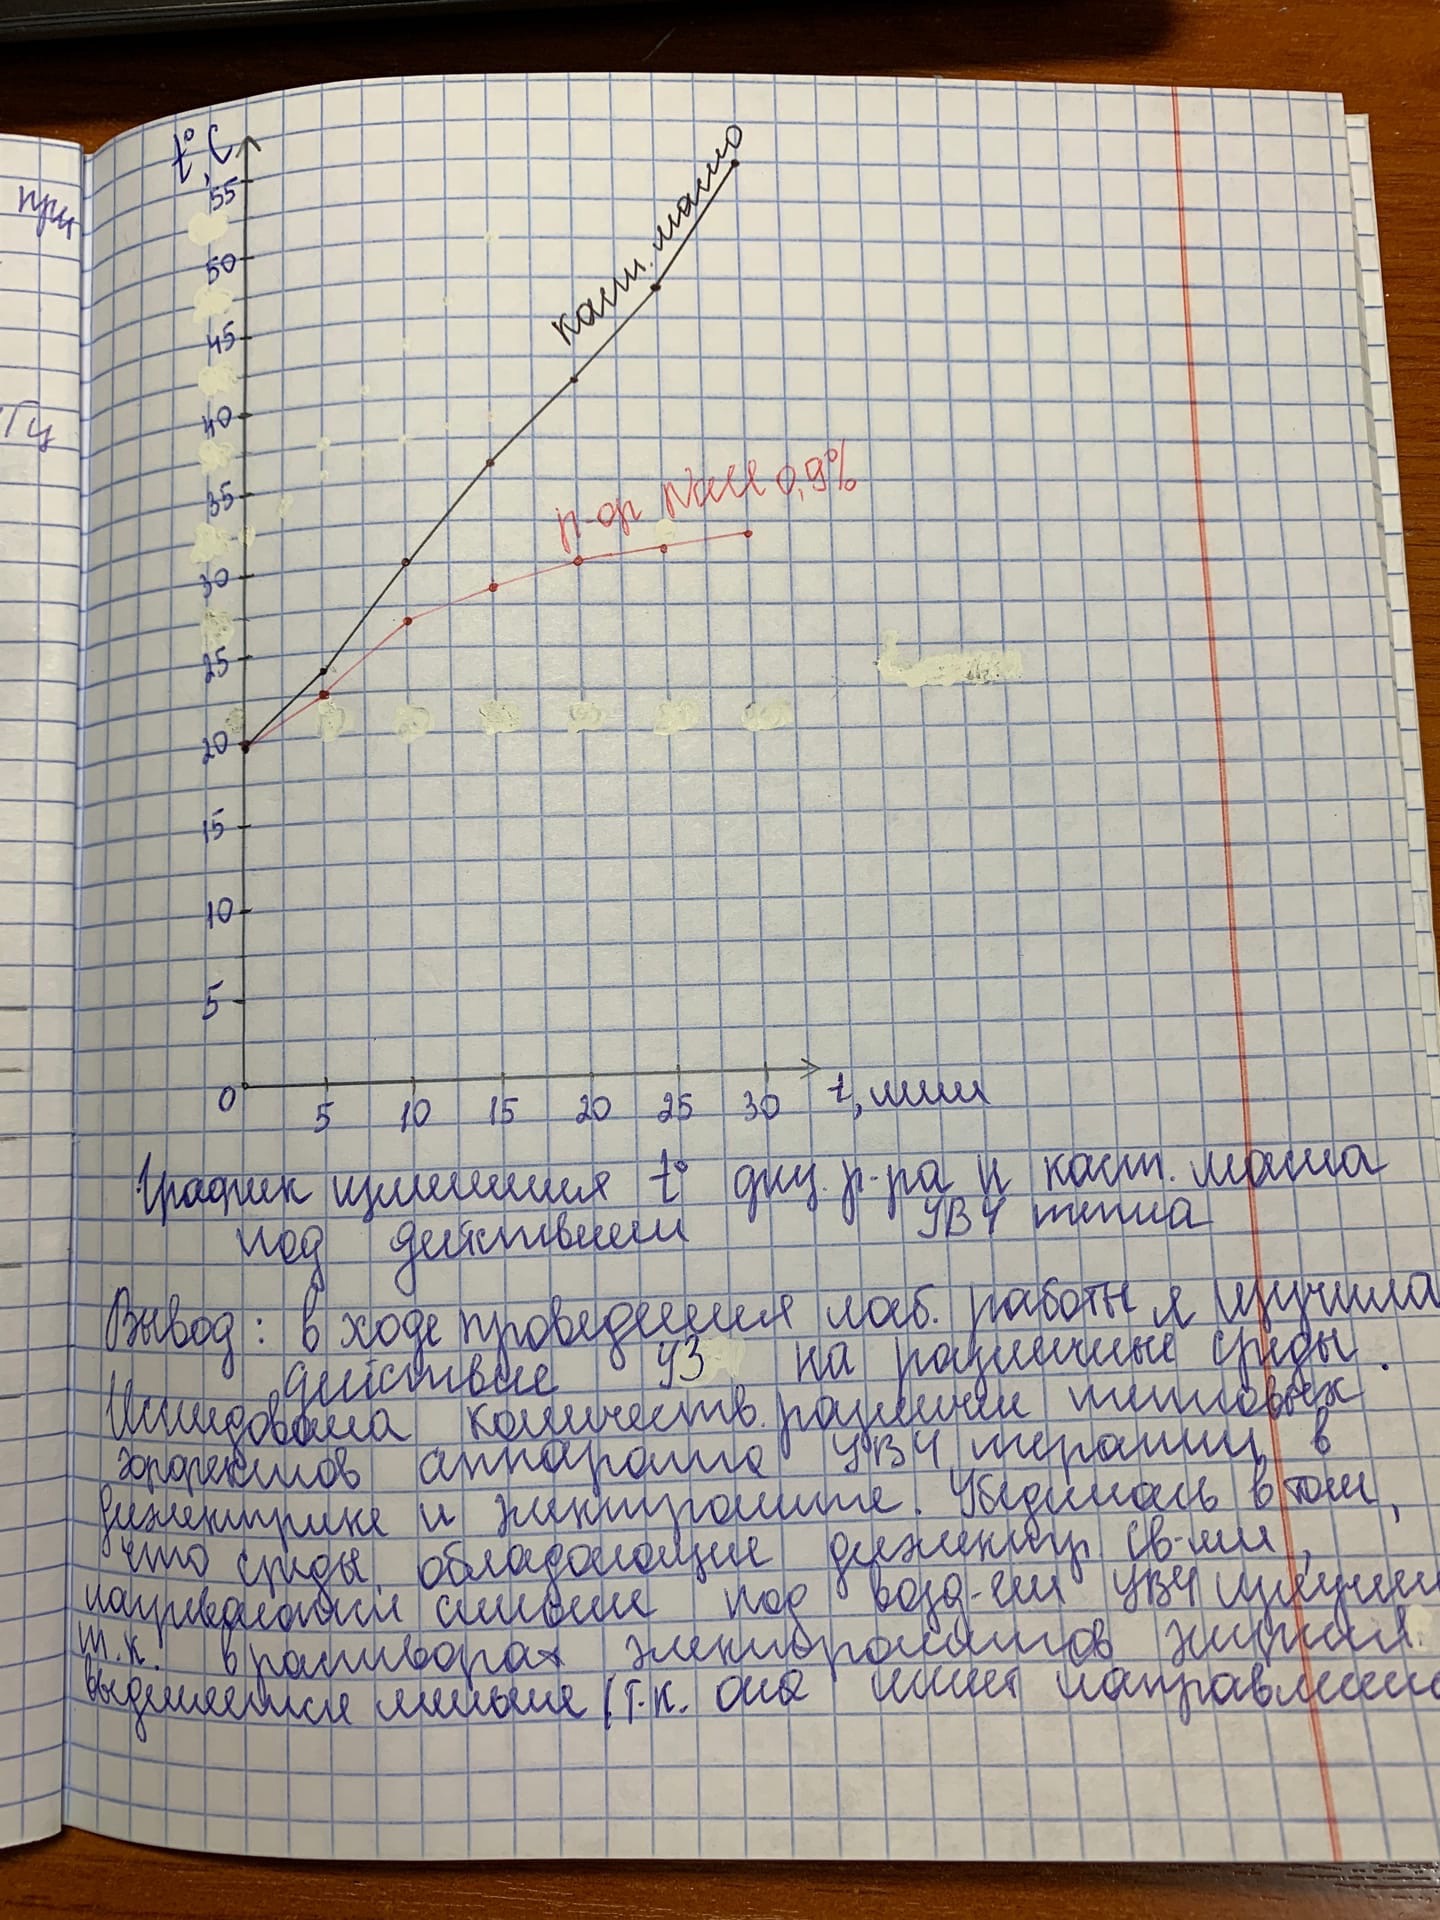 при
Гц
t°, C
55
50
45
40
35
30
25
20
15
10
5
0
5 10 15 20 25 30 t, мин
каст. масло
р-ор NaCl 0,9%
График изменения t° физ. р-ра и каст. масла
под действием УВЧ тепла
Вывод: в ходе проведения лаб. работы я изучила
действие УЗ на различные среды.
Исследовала количеств. различия тепловых
эффектов аппарата УВЧ терапии в
диэлектрике и электролите. Убедилась в том,
что среды, обладающие диэлектр св-ми,
нагреваются сильнее под возд-ем УВЧ излучен
т.к. в растворах электролитов энергия
выделяется меньше (т.к. она имеет направлен